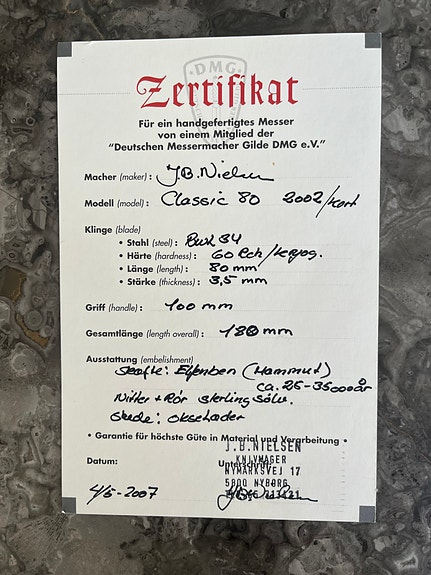 DMG
Zertifikat
Für ein handgefertigtes Messer
von einem Mitglied der
"Deutschen Messermacher Gilde DMG e.V."
Macher (maker): J.B.Nielsen
Modell (model): Classic 80 2002/kort
Klinge (blade)
• Stahl (steel): RWL 34
• Härte (hardness): 60 Rch/
• Länge (length): 80 mm
• Stärke (thickness): 3,5 mm
Griff (handle): 100 mm
Gesamtlänge (length overall): 180 mm
Ausstattung (embellishment)
Skæfte: Elfenben (Mammut)
ca. 25-35000 år
Nitter + Rør sterling sølv.
Skede: okselæder
• Garantie für höchste Güte in Material und Verarbeitung •
J.B.NIELSEN
KNIVMAGER
Datum: Unterschrift:
NYMARKSVEJ 17
5800 NYBORG
4/5-2007